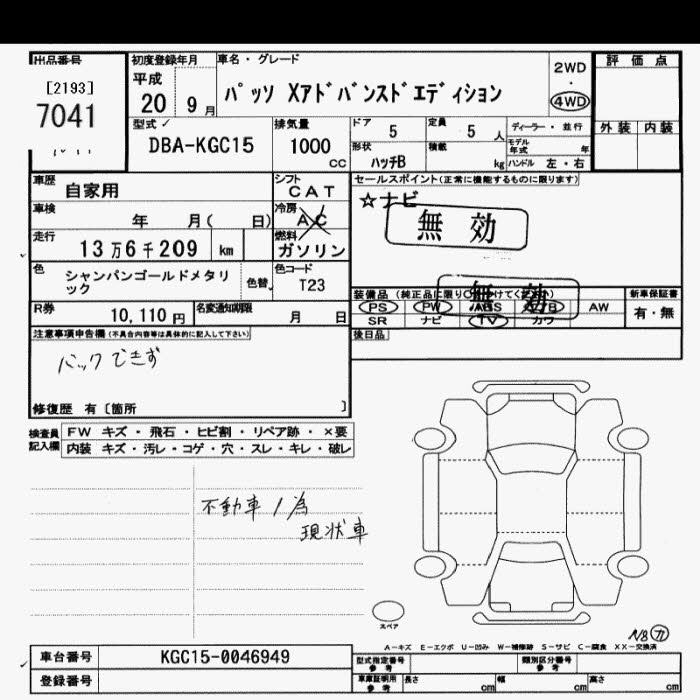 出品番号
[2193]
7041
初度登録年月
平成
20 9月
車名・グレード
パッソ Xアドバンスドエディション
2WD
4WD
評価点
外装 内装
型式
DBA-KGC15
排気量
1000
cc
ドア
5
定員
5 人
形状
ハッチB
積載
kg
ディーラー・並行
モデル年式 年
ハンドル 左・右
車歴
自家用
シフト
CAT
車検
年 月( 日)
冷房
AC
走行
13万6千209 km
燃料
ガソリン
色
シャンパンゴールドメタリック
色替
色コード
T23
R券
10,110円
名変通知期限
月 日
セールスポイント(正常に機能するものに限ります)
☆ナビ
無効
無効
装備品
PS PW ABS AW
SR ナビ TV カワ
新車保証書
有・無
後日品
注意事項申告欄(不具合内容等は具体的に記入して下さい)
バックできず
修復歴 有〔箇所 〕
検査員記入欄
FW キズ・飛石・ヒビ割・リペア跡・×要
内装 キズ・汚レ・コゲ・穴・スレ・キレ・破レ
不動車ノ為
現状車
スペア
A-キズ E-エクボ U-凹み W-補修跡 S-サビ C-腐食 XX-交換済
車台番号
KGC15-0046949
登録番号
型式指定番号
参考
類別区分番号
参考
車庫証明用
参考
長さ cm
幅 cm
高さ cm